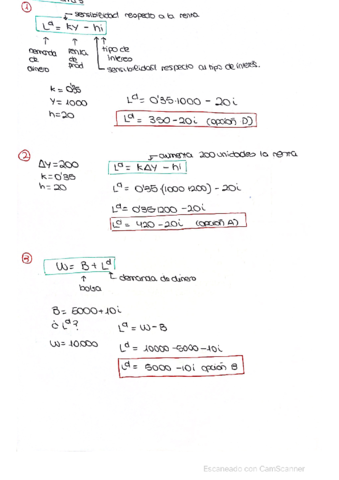 ①
sensibilidad respecto a la renta
Lᵈ = kY - hi
demanda de dinero
renta de prod
tipo de interes
sensibilidad respecto al tipo de interés.
k = 0'35
Y = 1000
h = 20
Lᵈ = 0'35·1000 - 20i
Lᵈ = 350 - 20i (opción D)
②
aumenta 200 unidades la renta
ΔY = 200
Lᵈ = kΔY - hi
k = 0'35
h = 20
Lᵈ = 0'35(1000 1200) - 20i
Lᵈ = 0'35 1200 - 20i
Lᵈ = 420 - 20i (opción A)
③
W = B + Lᵈ
demanda de dinero
bolsa
B = 5000 + 10i
¿Lᵈ?
Lᵈ = W - B
W = 10000
Lᵈ = 10000 - 5000 - 10i
Lᵈ = 5000 - 10i opción B
Escaneado con CamScanner